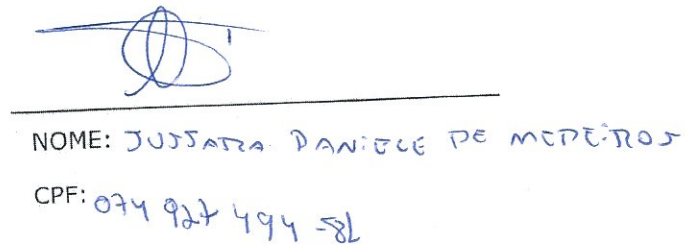 NOME: JUSSARA DANIELE DE MEDEIROS
CPF: 074 927 494 -81